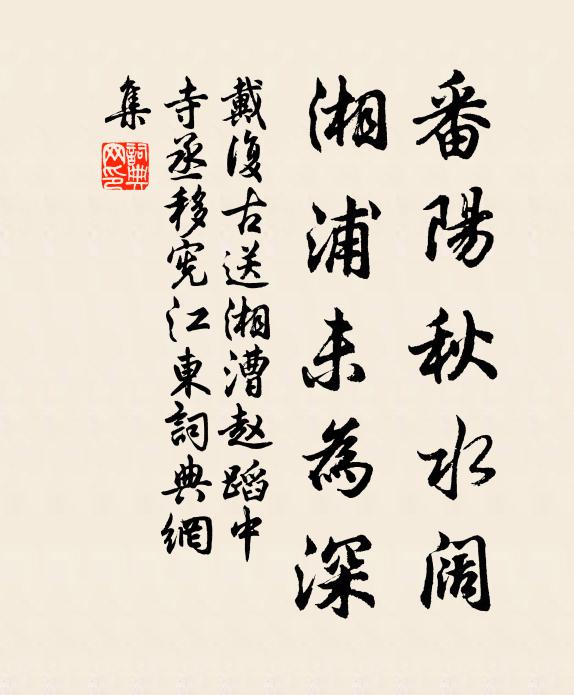 番陽秋水闊
湘浦未為深
戴復古送湘漕赵蹈中
寺丞移宪江東詞典網
集
詞典網印